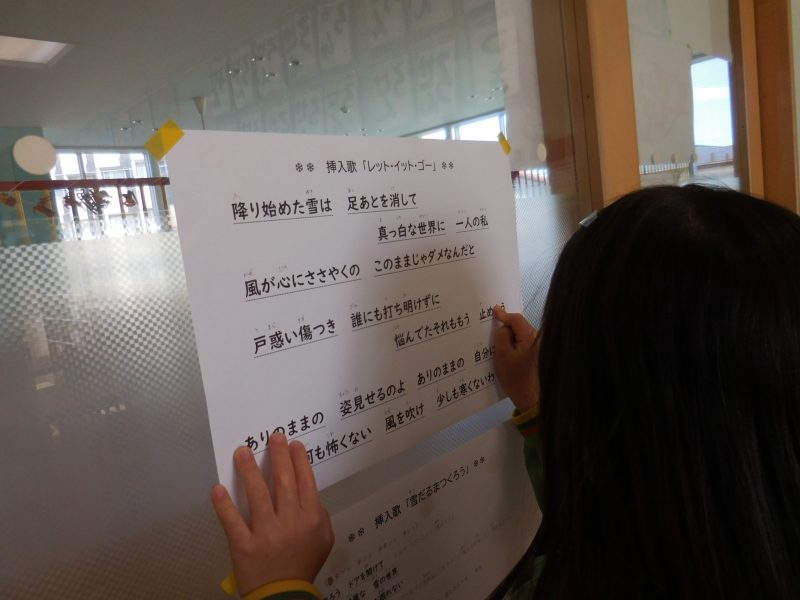 ** 挿入歌「レット・イット・ゴー」 **
降り始めた雪は 足あとを消して
真っ白な世界に 一人の私
風が心にささやくの このままじゃダメなんだと
戸惑い傷つき 誰にも打ち明けずに
悩んでたそれももう 止め う
ありのままの 姿見せるのよ ありのままの 自分に
何も怖くない 風を吹け 少しも寒くないわ
** 挿入歌「雪だるまつくろう」 **
ろう ドアを開けて
雪の世界